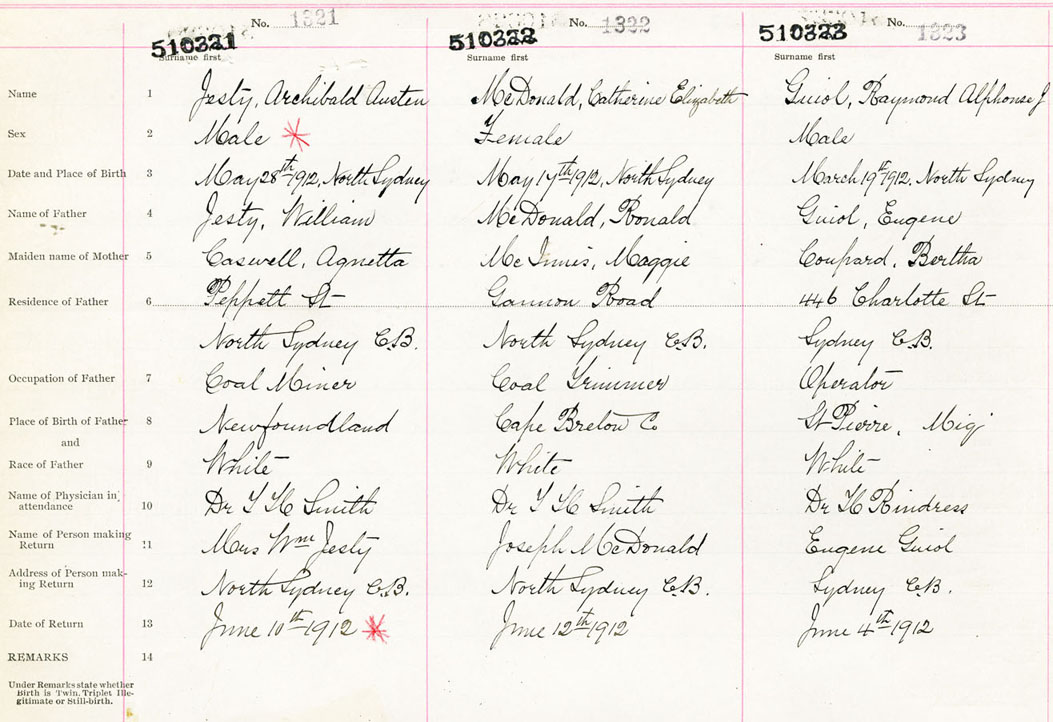 No. 1321 No. 1322 No. 1323
510321 510322 510323
Surname first Surname first Surname first
Name 1 Jesty, Archibald Austen McDonald, Catherine Elizabeth Guiol, Raymond Alphonse J
Sex 2 Male Female Male
Date and Place of Birth 3 May 28th 1912, North Sydney May 17th 1912, North Sydney March 19th 1912, North Sydney
Name of Father 4 Jesty, William McDonald, Ronald Guiol, Eugene
Maiden name of Mother 5 Caswell, Agnetta McInnis, Maggie Coupard, Bertha
Residence of Father 6 Peppett St Gannon Road 446 Charlotte St
North Sydney C.B. North Sydney C.B. Sydney C.B.
Occupation of Father 7 Coal Miner Coal Trimmer Operator
Place of Birth of Father 8 Newfoundland Cape Breton Co St Pierre, Miq
and
Race of Father 9 White White White
Name of Physician in attendance 10 Dr T H Smith Dr T H Smith Dr H Rindress
Name of Person making Return 11 Mrs Wm Jesty Joseph McDonald Eugene Guiol
Address of Person mak-ing Return 12 North Sydney C.B. North Sydney C.B. Sydney C.B.
Date of Return 13 June 10th 1912 June 12th 1912 June 4th 1912
REMARKS 14
Under Remarks state whether
Birth is Twin, Triplet Ille-
gitimate or Still-birth.